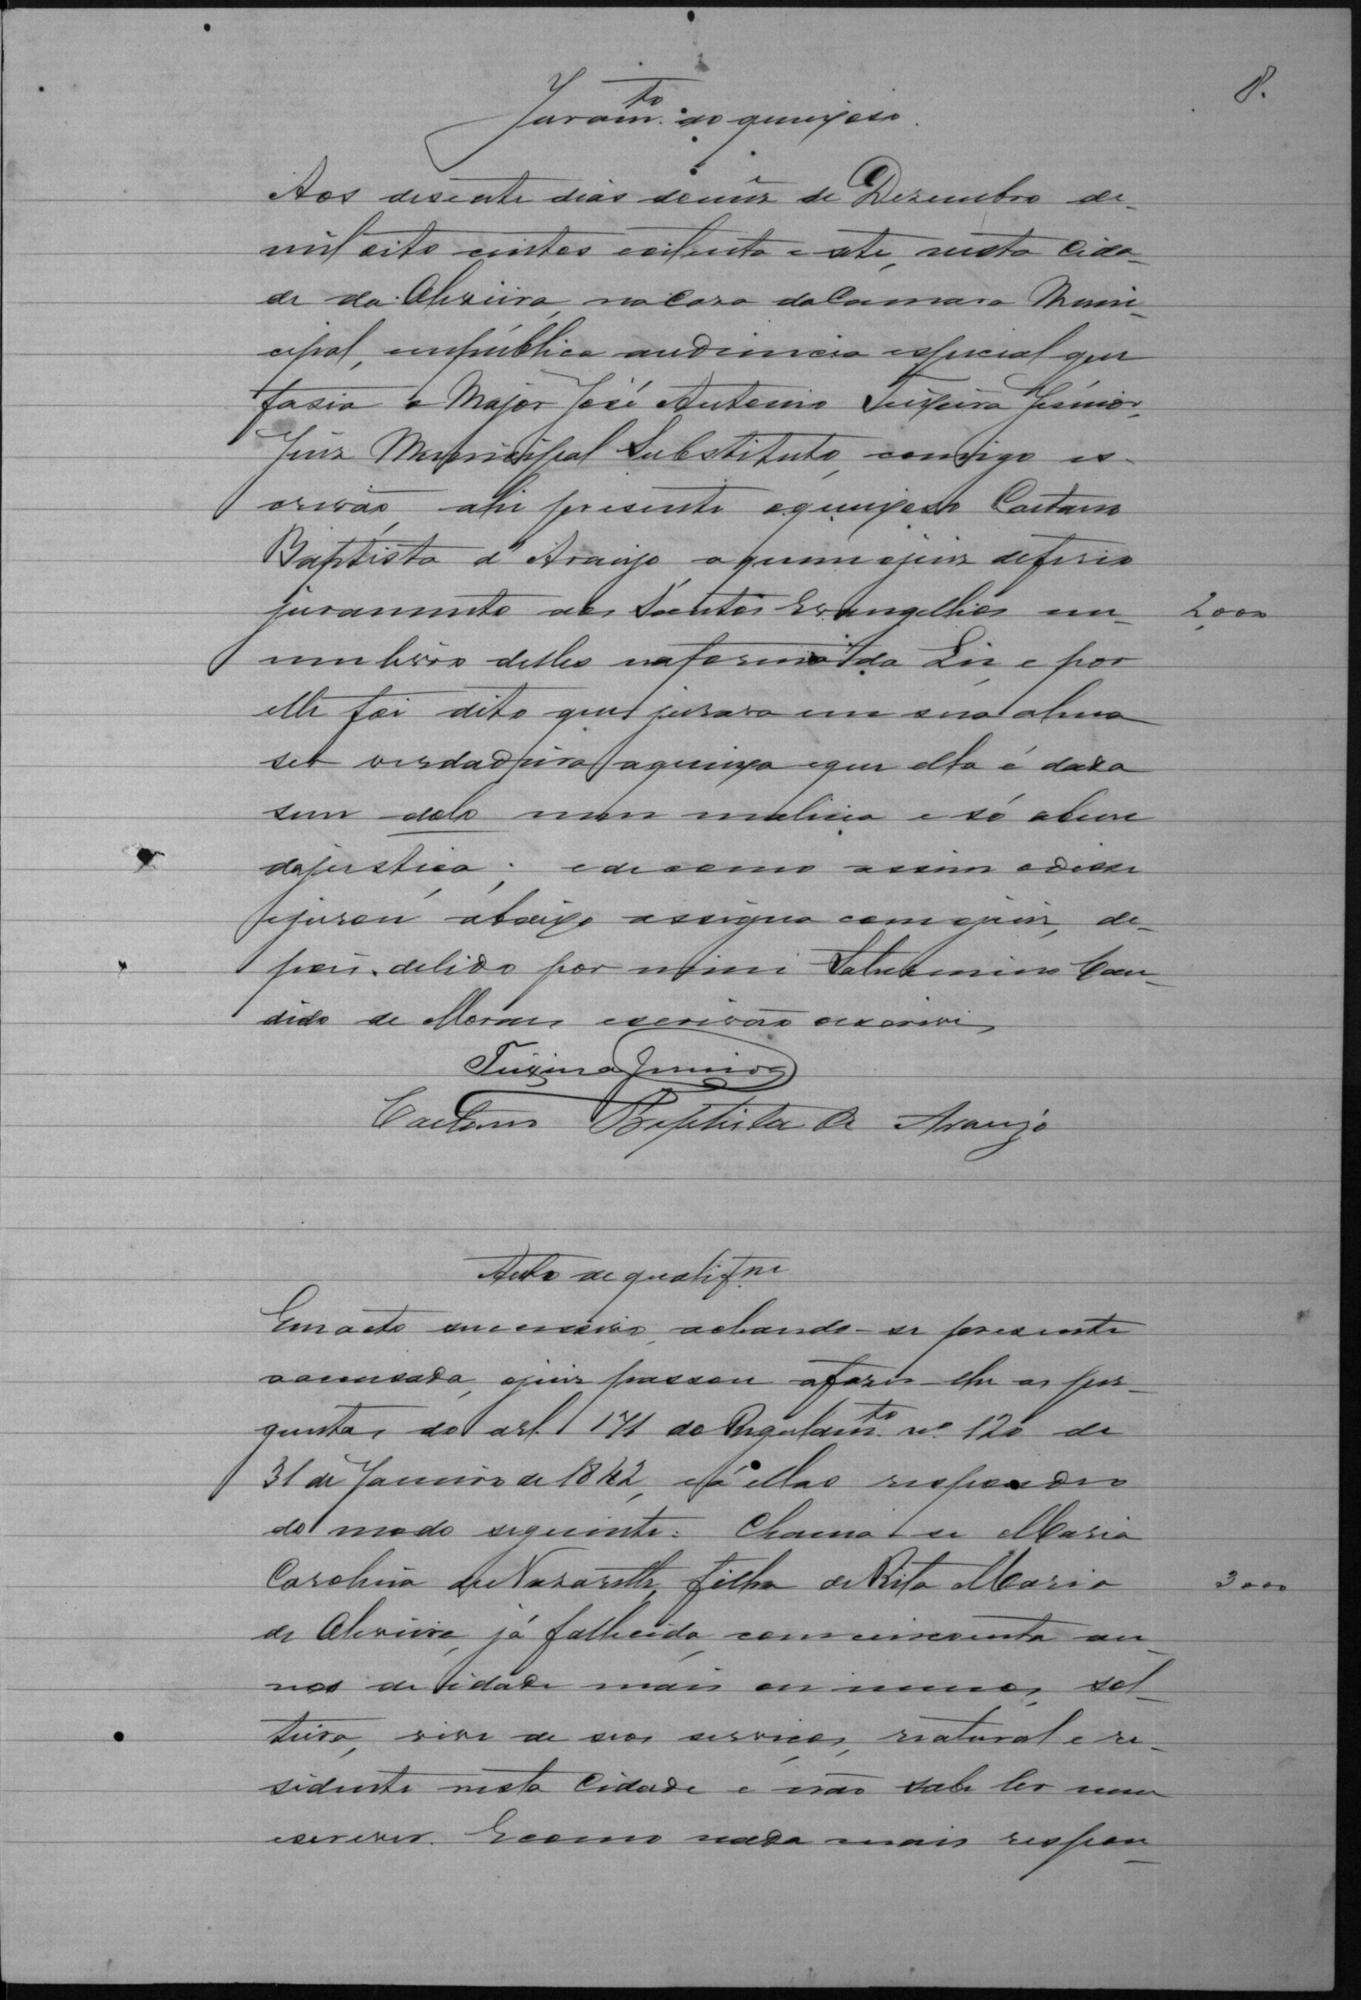 8.
Juram.to do queixoso.
Aos desesete dias do mez de Dezembro de
mil oito centos e oitenta e sete, nesta Cida-
de da Oliveira, na Casa da Camara Muni-
cipal, em publica audiencia especial que
fasia o Major José Antonio Teixeira Junior,
Juiz Municipal Substituto, comigo es-
crivão, ahi presente o queixoso Caetano
Baptista d'Araujo, a quem o juiz deferio
juramento aos Santos Evangelhos em
2,000
um livro delles na forma da Lei, e por
elle foi dito que jurava em sua alma
ser verdadeira a queixa e que ella é dada
sem dolo nem malicia e só a bem
da justiça; e de como assim o disse
e jurou abaixo assigna com o juiz, de-
pois de lido por mim Saturnino Can-
dido de Moraes escrivão o escrivi,
Teixeira Junior
Caetano Baptista de Araujo
Auto de qualif.m
Em acto successivo, achando-se presente
a accusada, o juiz passou a faser-lhe as per-
guntas do art. 171 do Regulam.to nº 120 de
31 de Janeiro de 1842, e á ellas respondeo
do modo seguinte: Chama-se Maria
Carolina de Nazareth, filha de Rita Maria
3000
de Oliveira, já fallecida, com cincoenta an-
nos de idade mais ou menos, sol-
teira, vive de seos serviços, natural e re-
sidente nesta Cidade e não sabe ler nem
escrever. E como nada mais respon-